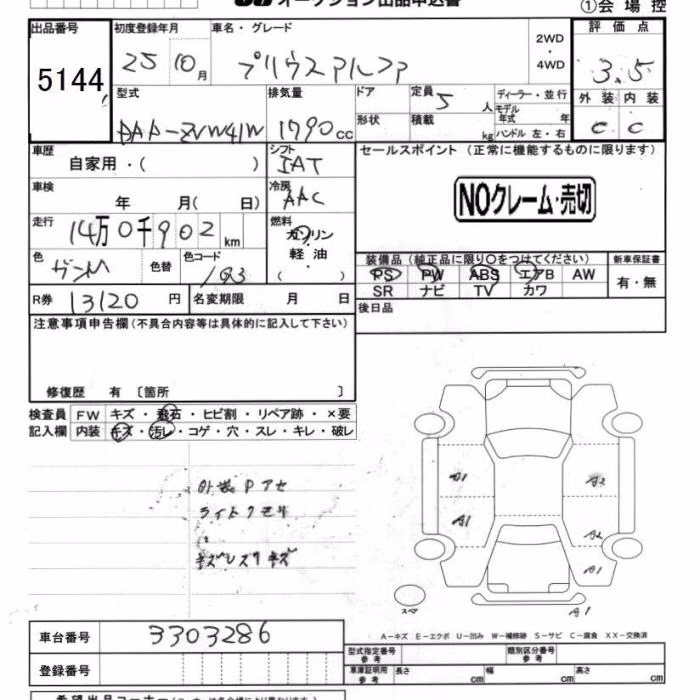 オークション出品申込書 ①会場控
出品番号 初度登録年月 車名・グレード 2WD・4WD 評価点
5144 25 10月 プリウスアルファ 3.5
型式 排気量 ドア 定員 5人 ディーラー・並行 外装 内装
形状 積載 kg モデル年式 年 ハンドル 左・右
DAA-ZVW41W 1790cc C C
車歴 シフト セールスポイント（正常に機能するものに限ります）
自家用・( ) IAT
車検 冷房
年 月( 日) AAC NOクレーム・売切
走行 14万0千902km 燃料 ガソリン
軽油・( )
色 色替 色コード 装備品（純正品に限り○をつけてください） 新車保証書
193 PS PW ABS エアB AW 有・無
SR ナビ TV カワ
R券 13120円 名変期限 月 日 後日品
注意事項申告欄(不具合内容等は具体的に記入して下さい)
修復歴 有 〔箇所 〕
検査員 FW キズ・飛石・ヒビ割・リペア跡・×要
記入欄 内装 キズ・汚レ・コゲ・穴・スレ・キレ・破レ
外装Pアセ
ライトクモリ
A1 A2
A1 A2
A1
スペア A1
A－キズ E－エクボ U－凹み W－補修跡 S－サビ C－腐食 XX－交換済
車台番号 3303286
型式指定番号 参考 類別区分番号 参考
登録番号 車庫証明用 参考 長さ cm 幅 cm 高さ cm